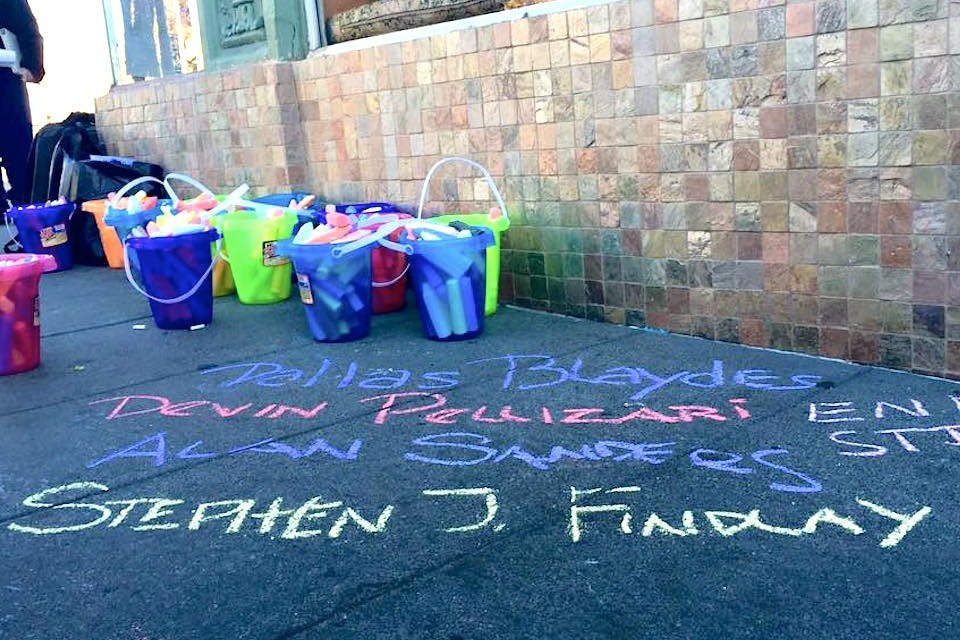 Dallas Blaydes
DEVIN PELLIZARI
ALAN SANDERS
STEPHEN J. FINDLAY
EN
ST